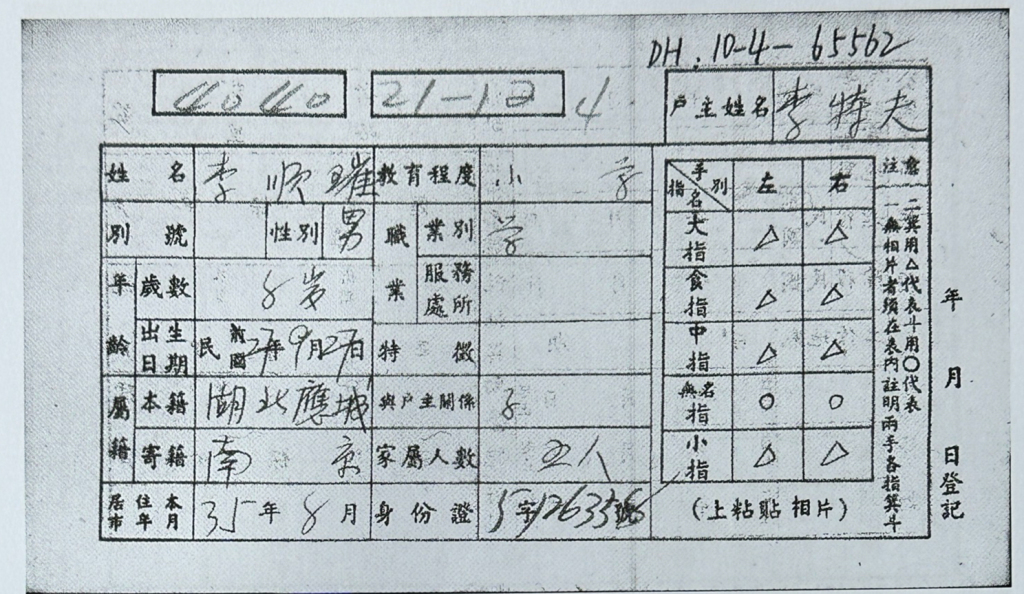 DH: 10-4-65562
4040 21-12 4
戶主姓名 李特夫
姓名 李順 教育程度 小学
別號 性別 男 職業 業別 学
年齡 歲數 8岁 服務處所
出生日期 民國前 年9月27日 特徵
屬籍 本籍 湖北應城 與戶主關係 子
寄籍 南京 家屬人數 五人
居住本市年月 35年8月 身份證 字 號
手別 指名 左 右
大指 △ △
食指 △ △
中指 △ △
無名指 ○ ○
小指 △ △
(上粘貼相片)
注意
一無相片者須在表內註明兩手各指箕斗
二箕用△代表斗用○代表
年 月 日登記